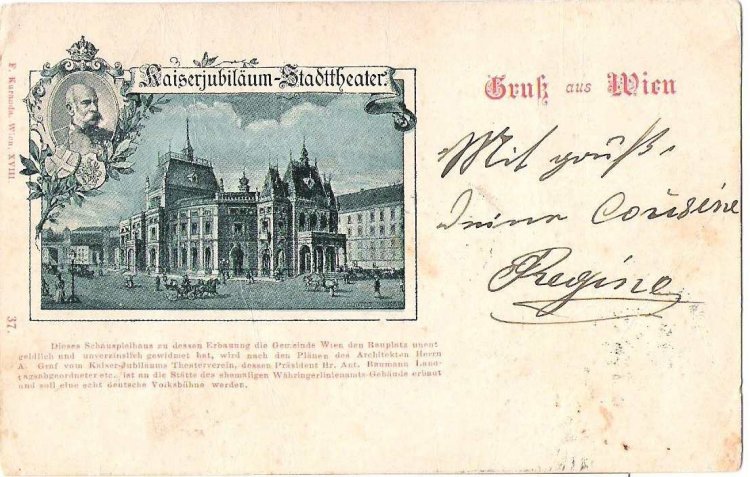 F. Kuranda, Wien, XVIII
37.
Kaiserjubiläum-Stadttheater.
Gruß aus Wien
Mit grüß.
deine Cousine
Regine
Dieses Schauspielhaus zu dessen Erbauung die Gemeinde Wien den Bauplatz unent
geldlich und unverzinslich gewidmet hat, wird nach den Plänen des Architekten Herrn
A. Graf vom Kaiser-Jubiläums Theaterverein, dessen Präsident Hr. Ant. Baumann Land-
tagsabgeordneter etc. ist an die Stätte des ehemaligen Währingerlinienamts-Gebäude erbaut
und soll eine echt deutsche Volksbühne werden.